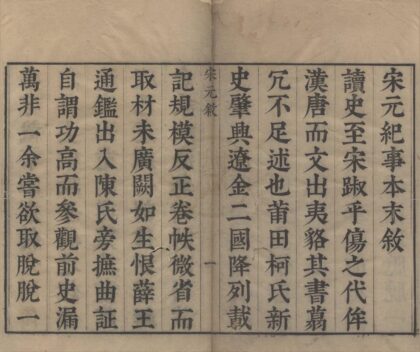 宋元紀事本末敘
讀史至宋踧乎傷之代侔
漢唐而文出夷貉其書蕪
冗不足述也莆田柯氏新
史肇興遼金二國降列載
宋元敘
一
記規模反正卷帙微省而
取材未廣闕如生恨薛王
通鑑出入陳氏旁摭曲証
自謂功高而參觀前史漏
萬非一余嘗欲取脫脫一